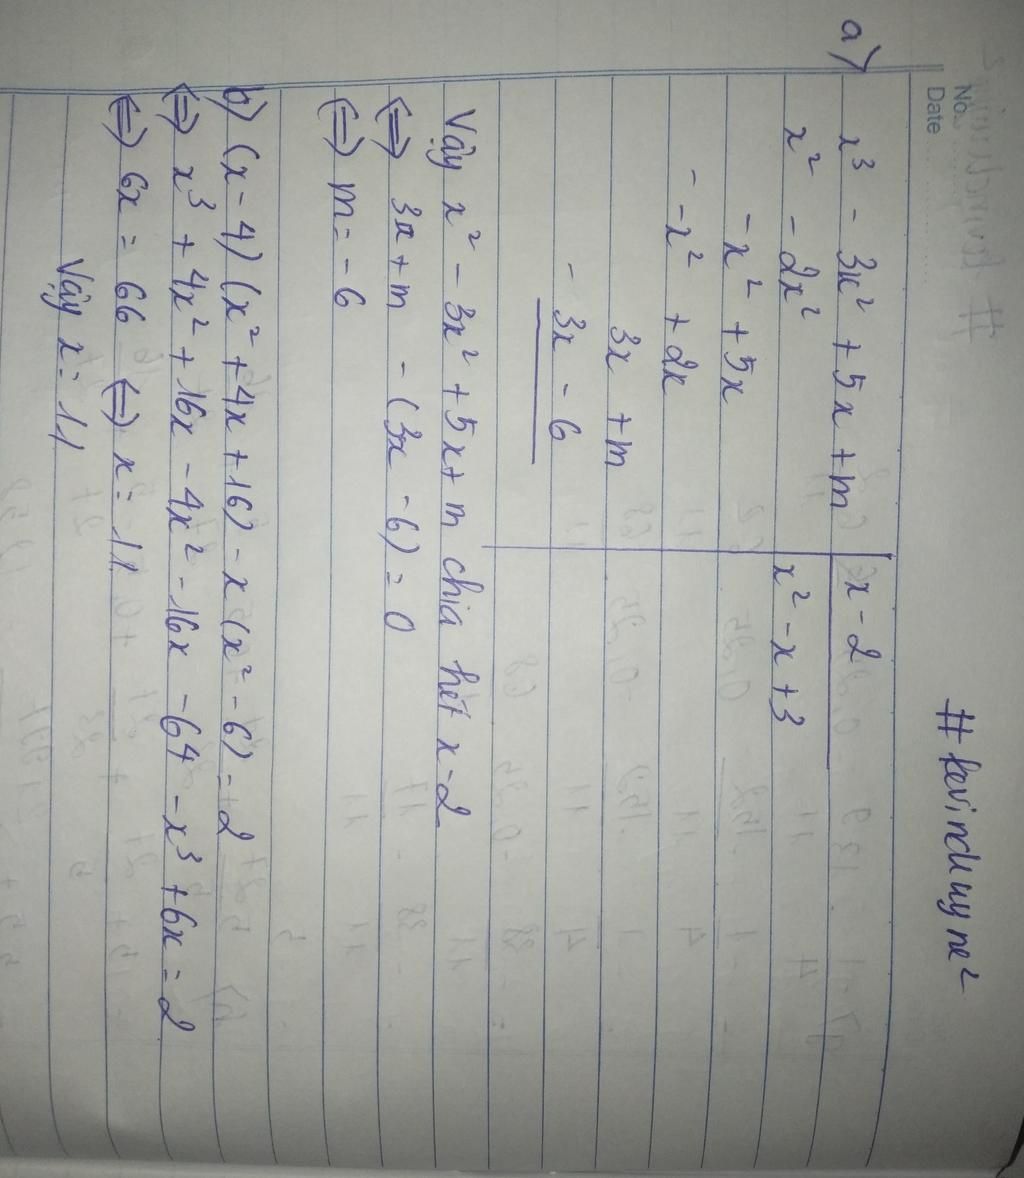 No.
Date
# kevinduy ne²
a) x³ - 3x² + 5x + m | x - 2
x² - 2x² | x² - x + 3
- x² + 5x
- - x² + 2x
3x + m
- 3x - 6
Vậy x² - 3x² + 5x + m chia hết x - 2
⇔ 3x + m - (3x - 6) = 0
⇔ m = - 6
b) (x - 4) (x² + 4x + 16) - x (x² - 6) = 2
⇔ x³ + 4x² + 16x - 4x² - 16x - 64 - x³ + 6x = 2
⇔ 6x = 66 ⇔ x = 11
Vậy x = 11